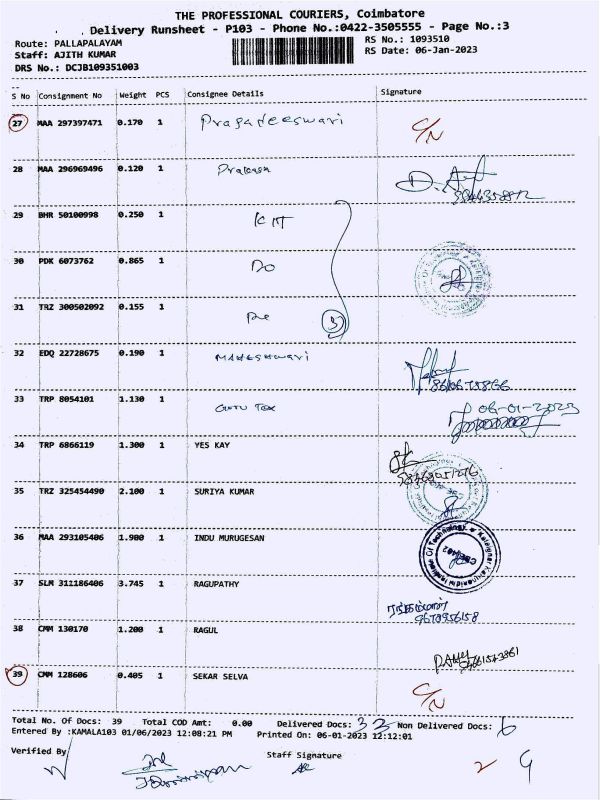 THE PROFESSIONAL COURIERS, Coimbatore
Delivery Runsheet - P103 - Phone No.:0422-3505555 - Page No.:3
Route: PALLAPALAYAM RS No.: 1093510
Staff: AJITH KUMAR RS Date: 06-Jan-2023
DRS No.: DCJB109351003
S No Consignment No Weight PCS Consignee Details Signature
27 MAA 297397471 0.170 1 Pragadeeswari C/N
28 MAA 296969496 0.120 1 Prakash
29 BHR 50100998 0.250 1 KIT
30 PDK 6073762 0.865 1 Do
31 TRZ 300502092 0.155 1 3
32 EDQ 22728675 0.190 1 Maheshwari
33 TRP 8054101 1.130 1 Guru Tex 06-01-2023
34 TRP 6866119 1.300 1 YES KAY
35 TRZ 325454490 2.100 1 SURIYA KUMAR
36 MAA 293105406 1.900 1 INDU MURUGESAN
37 SLM 311186406 3.745 1 RAGUPATHY 9670956158
38 CMM 130170 1.200 1 RAGUL
39 CMM 128606 0.405 1 SEKAR SELVA C/N
Total No. Of Docs: 39 Total COD Amt: 0.00 Delivered Docs: 33 Non Delivered Docs: 6
Entered By :KAMALA103 01/06/2023 12:08:21 PM Printed On: 06-01-2023 12:12:01
Verified By Staff Signature
2